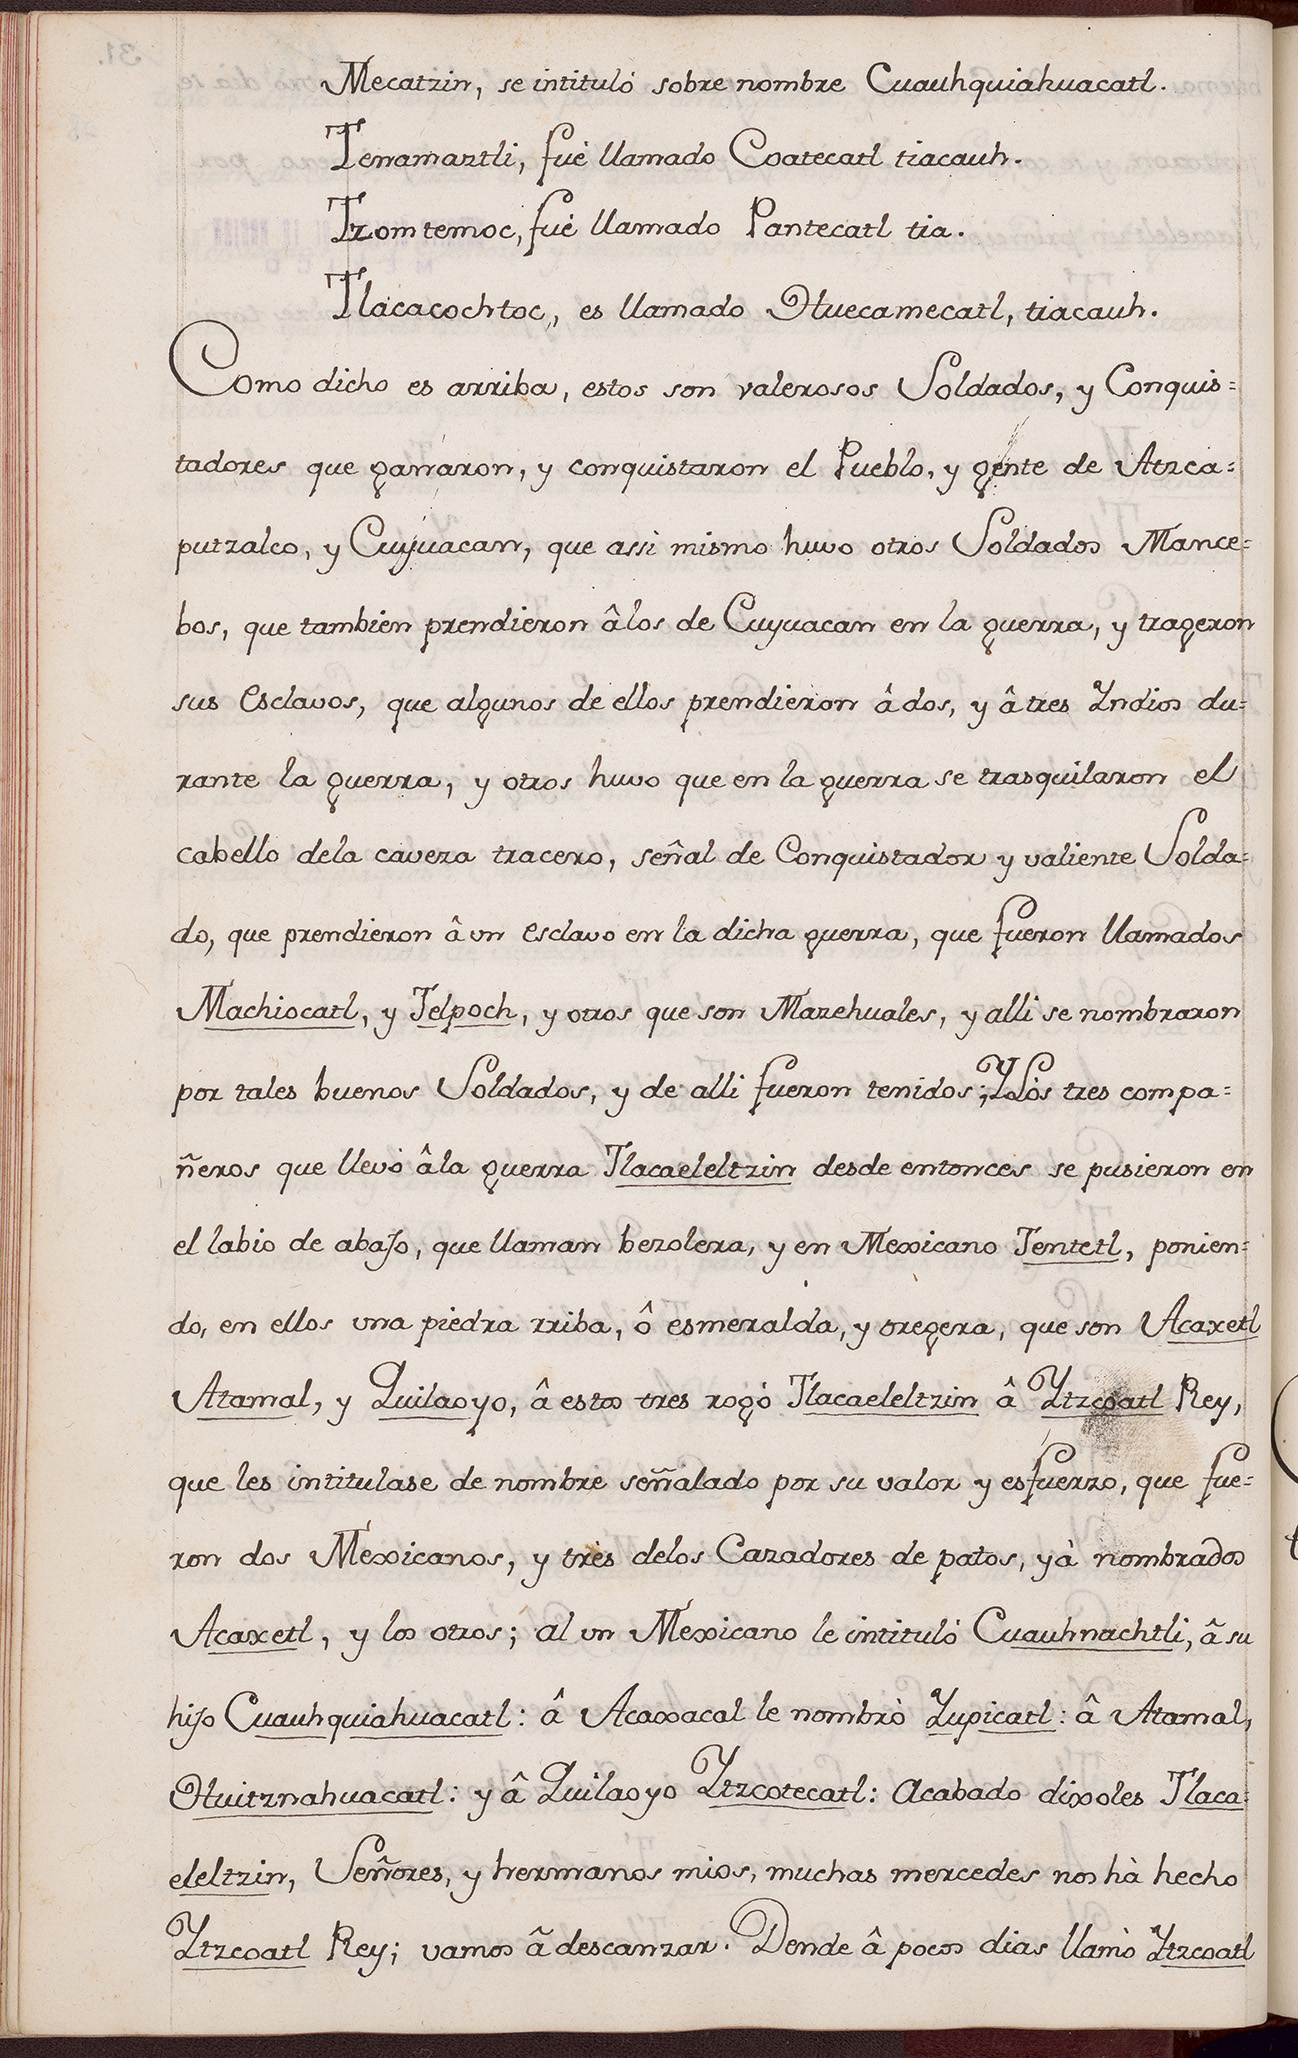 Mecatzin, se intituló sobre nombre Cuauhquiahuacatl.
Tenamaztli, fué llamado Coatecatl tiacauh.
Tzomtemoc, fué llamado Pantecatl tia.
Tlacacochtoc, es llamado Huecamecatl, tiacauh.
Como dicho es arriba, estos son valerosos Soldados, y Conquis=
tadores que ganaron, y conquistaron el Pueblo, y gente de Atzca=
putzalco, y Cuyuacan, que assi mismo huvo otros Soldados Mance=
bos, que tambien prendieron â los de Cuyuacan en la guerra, y trageron
sus Esclavos, que algunos de ellos prendieron â dos, y â tres Yndios du=
rante la guerra, y otros huvo que en la guerra se trasquilaron el
cabello dela caveza tracero, señal de Conquistador y valiente Solda=
do, que prendieron â un esclavo en la dicha guerra, que fueron llamados
Machiocatl, y Telpoch, y otros que son Mazehuales, y alli se nombraron
por tales buenos Soldados, y de alli fueron tenidos; Y Los tres compa=
ñeros que llevó âla guerra Tlacaeleltzin desde entonces se pusieron en
el labio de abajo, que llaman bezolera, y en Mexicano Tentetl, ponien=
do, en ellos una piedra rriba, ô esmeralda, y oregera, que son Acaxetl
Atamal, y Quilaoyo, â estos tres rogó Tlacaeleltzin â Ytzcoatl Rey,
que les intitulase de nombre señalado por su valor y esfuerzo, que fue=
ron dos Mexicanos, y tres delos Cazadores de patos, yà nombrados
Acaxetl, y los otros; al un Mexicano le intituló Cuauhnochtli, â su
hijo Cuauhquiahuacatl: â Acaxacal le nombrò Yupicatl: â Atamal,
Huitznahuacatl: y â Quilaoyo Ytzcotecatl: Acabado dixoles Tlaca=
eleltzin, Señores, y hermanos mios, muchas mercedes nos hà hecho
Ytzcoatl Rey; vamos â descanzar. Dende â pocos dias llamò Ytzcoatl